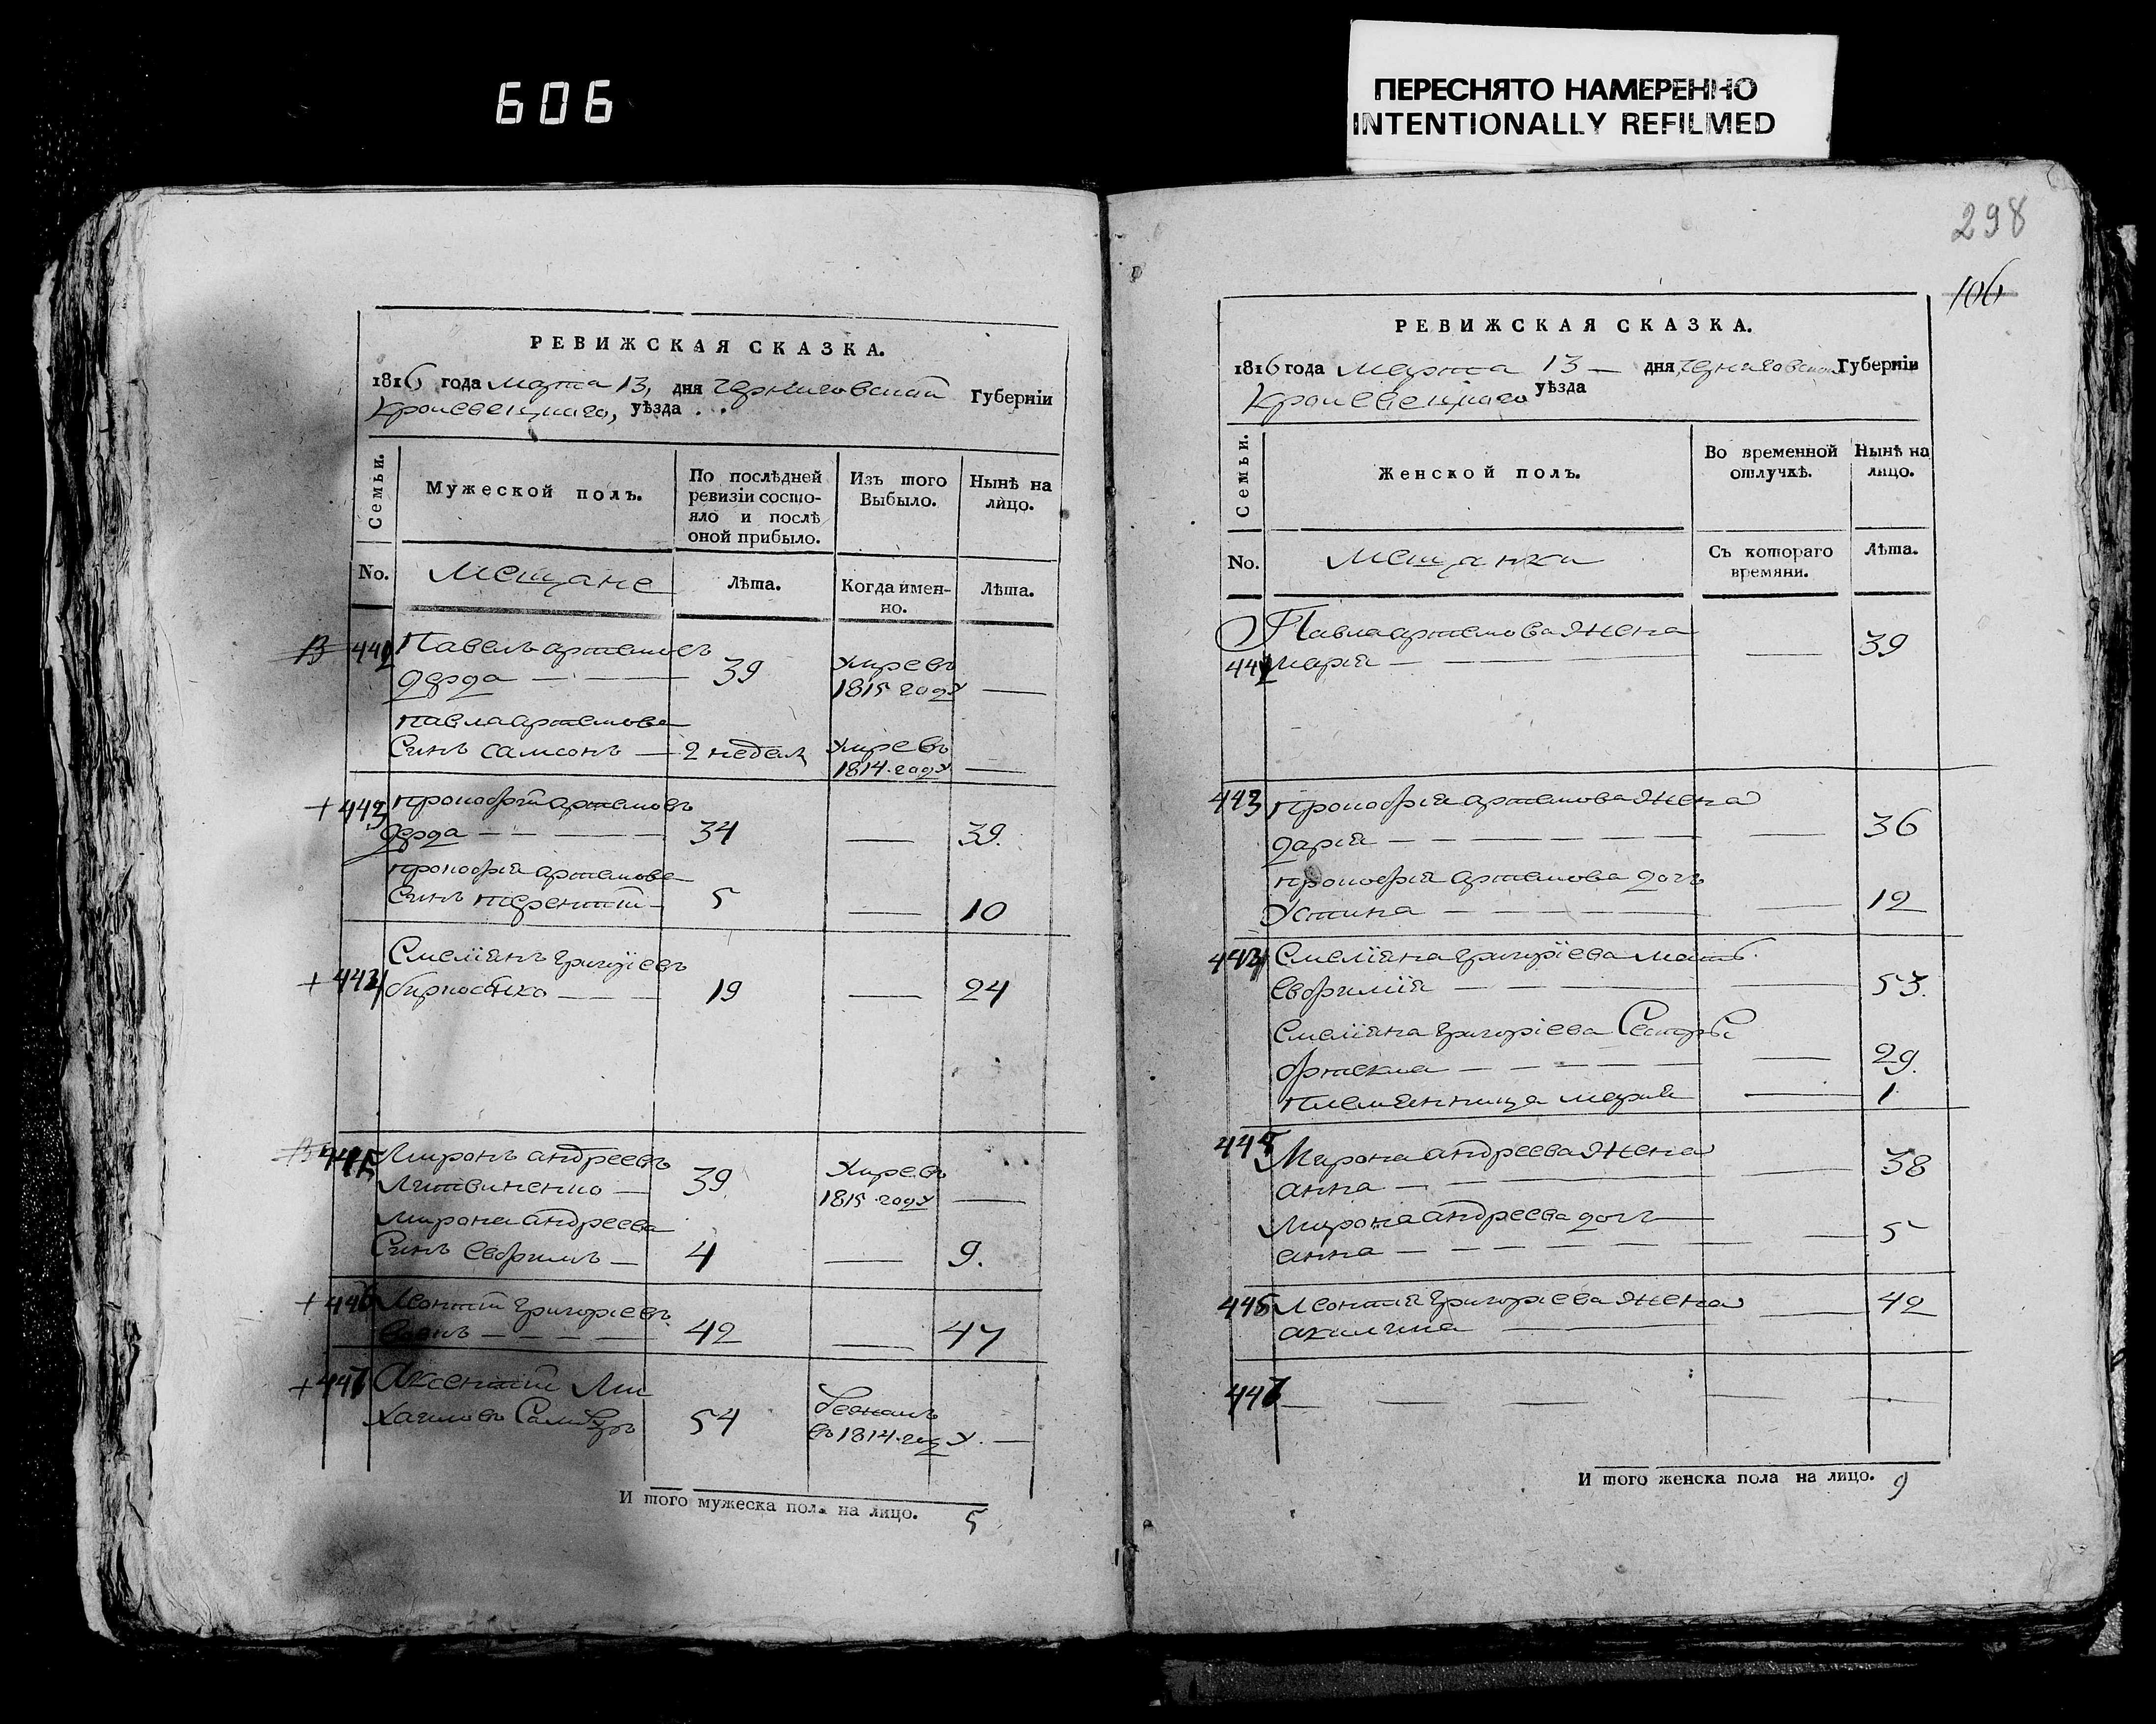 606
ПЕРЕСНЯТО НАМЕРЕННО
INTENTIONALLY REFILMED
РЕВИЖСКАЯ СКАЗКА.
1816 года марта 13, дня черниговской Губерніи
Кролевецкаго, уѣзда
Семьи.
Мужеской полъ.
По послѣдней
ревизіи состо-
яло и послѣ
оной прибыло.
Изъ того
Выбыло.
Нынѣ на
лицо.
No.
Мещане
Лѣта.
Когда имен-
но.
Лѣта.
442 Павелъ артемовъ
дерда 39 Умре въ
1815 году
Павла артемова
Синъ самсонъ 2 недели Умре въ
1814 году
+ 443 Прокофій артемовъ
дерда 34 39.
прокофія артемова
Синъ терентій 5 10
Смеліянъ григоріевъ
+ 444 19 24
445 Миронъ андреевъ
Литвиненко 39 Умре въ
1815 году
Мирона андреева
Синъ Евфимъ 4 9.
+ 446 Леонтій григоріевъ
42 47
+ 447 Аксентій Ми
хаиловъ 54 бежалъ
въ 1814 году.
И того мужеска пола на лицо. 5
298
106
РЕВИЖСКАЯ СКАЗКА.
1816 года марта 13 дня черниговской Губерніи
Кролевецкаго уѣзда
Семьи.
Женской полъ.
Во временной
отлучкѣ.
Нынѣ на
лицо.
No.
мещанки
Съ котораго
времяни.
Лѣта.
Павла артемова жена
442 марія 39
443 Прокофія артемова жена
дарія 36
прокофія артемова дочь
Устина 12
444 Смеліяна григоріева мать
Евфимія 53.
Смеліяна григоріева Сестры
фтекла 29.
племянница марія 1
445 Мирона андреева жена
анна 38
Мирона андреева дочь
анна 5
446 Леонтія григоріева жена
акилина 42
447
И того женска пола на лицо. 9